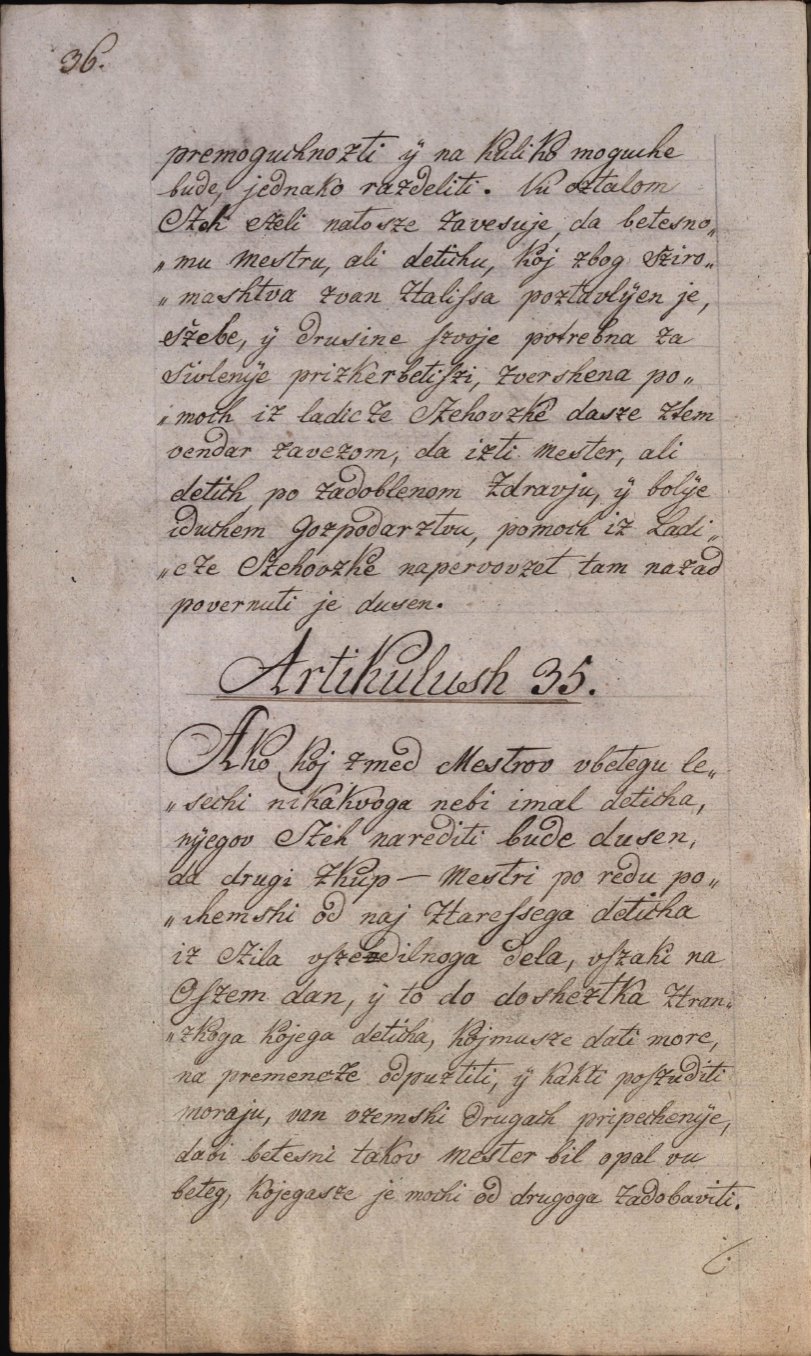 36.
premoguchnozti ÿ na kuliko moguche
bude, jednako razdeliti. Vu oztalom
Czeh czeli natosze zavesuje, da betesno„
„mu Mestru, ali detichu, koj zbog sziro„
„mashtva zvan ztalissa poztavlÿen je,
szebe, ÿ Drusine szvoje potrebna za
sivlenÿe prizkerbetiszi, zvershena po„
„moch iz ladicze Czehovzke dasze ztem
vendar zavezom, da izti Mester, ali
detich po zadoblenom zdravju, ÿ bolÿe
iduchem gozpodarztvu, pomoch iz Ladi„
„cze Czehovzke napervovzet tam nazad
povernuti je dusen.
Artikulush 35.
Ako koj zmed Mestrov vbetegu le„
„sechi nikakvoga nebi imal deticha,
nÿegov Czeh narediti bude dusen,
da drugi Zkup – Mestri po redu po„
„chemshi od naj ztaressega deticha
iz Czila vszedilnoga dela, vszaki na
Oszem dan, ÿ to do dosheztka ztran„
„zkoga kojega deticha, kojmusze dati more,
na premencze odpuztiti, ÿ kakti poszuditi
moraju, van vzemshi drugach pripechenÿe,
dabi betesni takov Mester bil opal vu
beteg, kojegasze je mochi od drugoga zadobaviti.